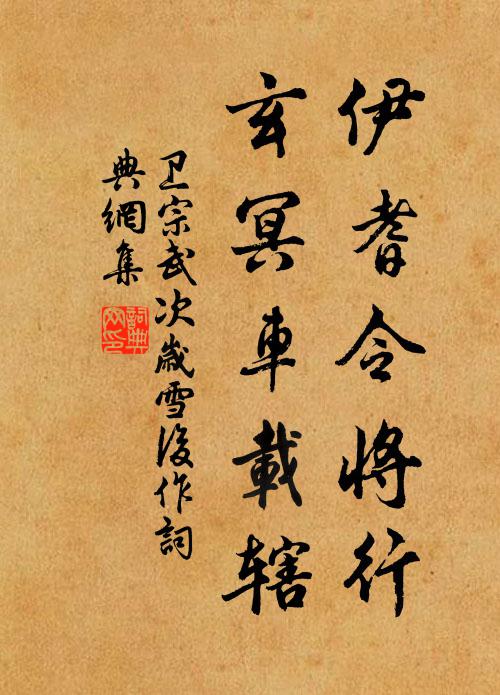 伊耆令将行
玄冥車載辖
卫宗武次歲雪後作詞
典網集
詞典網印